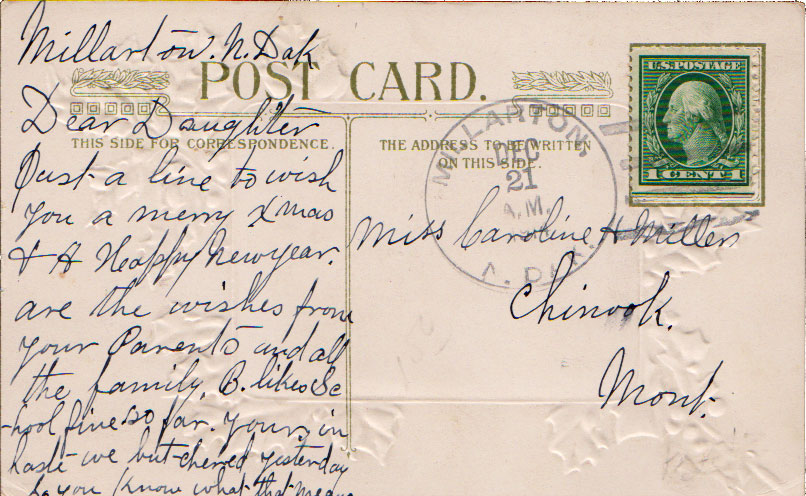 Millarton. N. Dak
POST CARD.
U.S. POSTAGE
1 CENT 1
MILLARTON,
DEC
21
A.M.
N. DAK.
THIS SIDE FOR CORRESPONDENCE.
THE ADDRESS TO BE WRITTEN
ON THIS SIDE.
Dear Daughter
Just a line to wish
you a merry Xmas
& A Happy New year.
are the wishes from
your Parents and all
the family, B. likes Sc
-hool fine so far. yours, in
haste we butchered yesterday
so you know what that means
Miss Caroline H Miller
Chinook.
Mont.